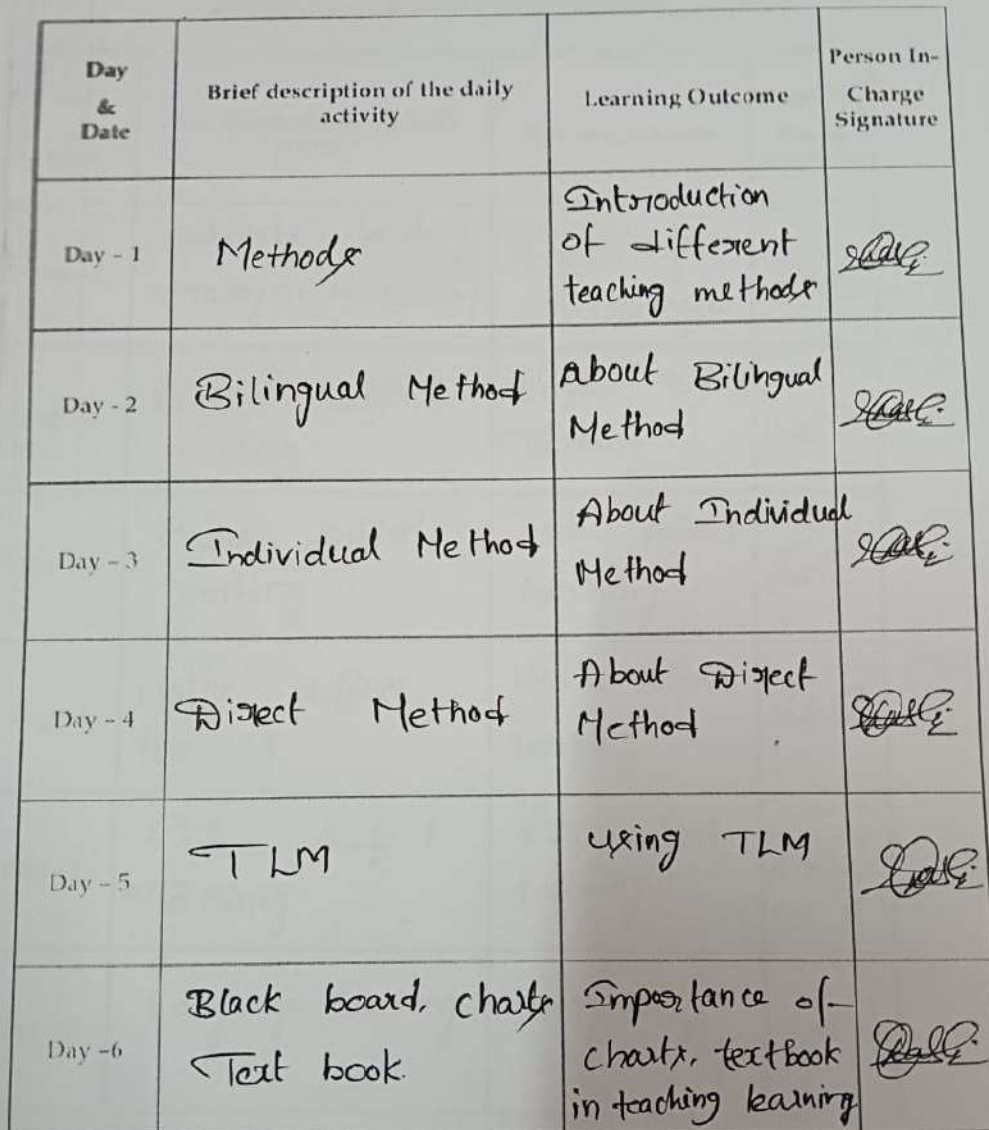 Day
&
Date
Brief description of the daily
activity
Learning Outcome
Person In-
Charge
Signature
Day - 1
Methods
Introduction
of different
teaching methods
Day - 2
Bilingual Method
About Bilingual
Method
Day - 3
Individual Method
About Individual
Method
Day - 4
Direct Method
About Direct
Method
Day - 5
TLM
using TLM
Day -6
Black board, charts
Text book.
Importance of
charts, textbook
in teaching learning